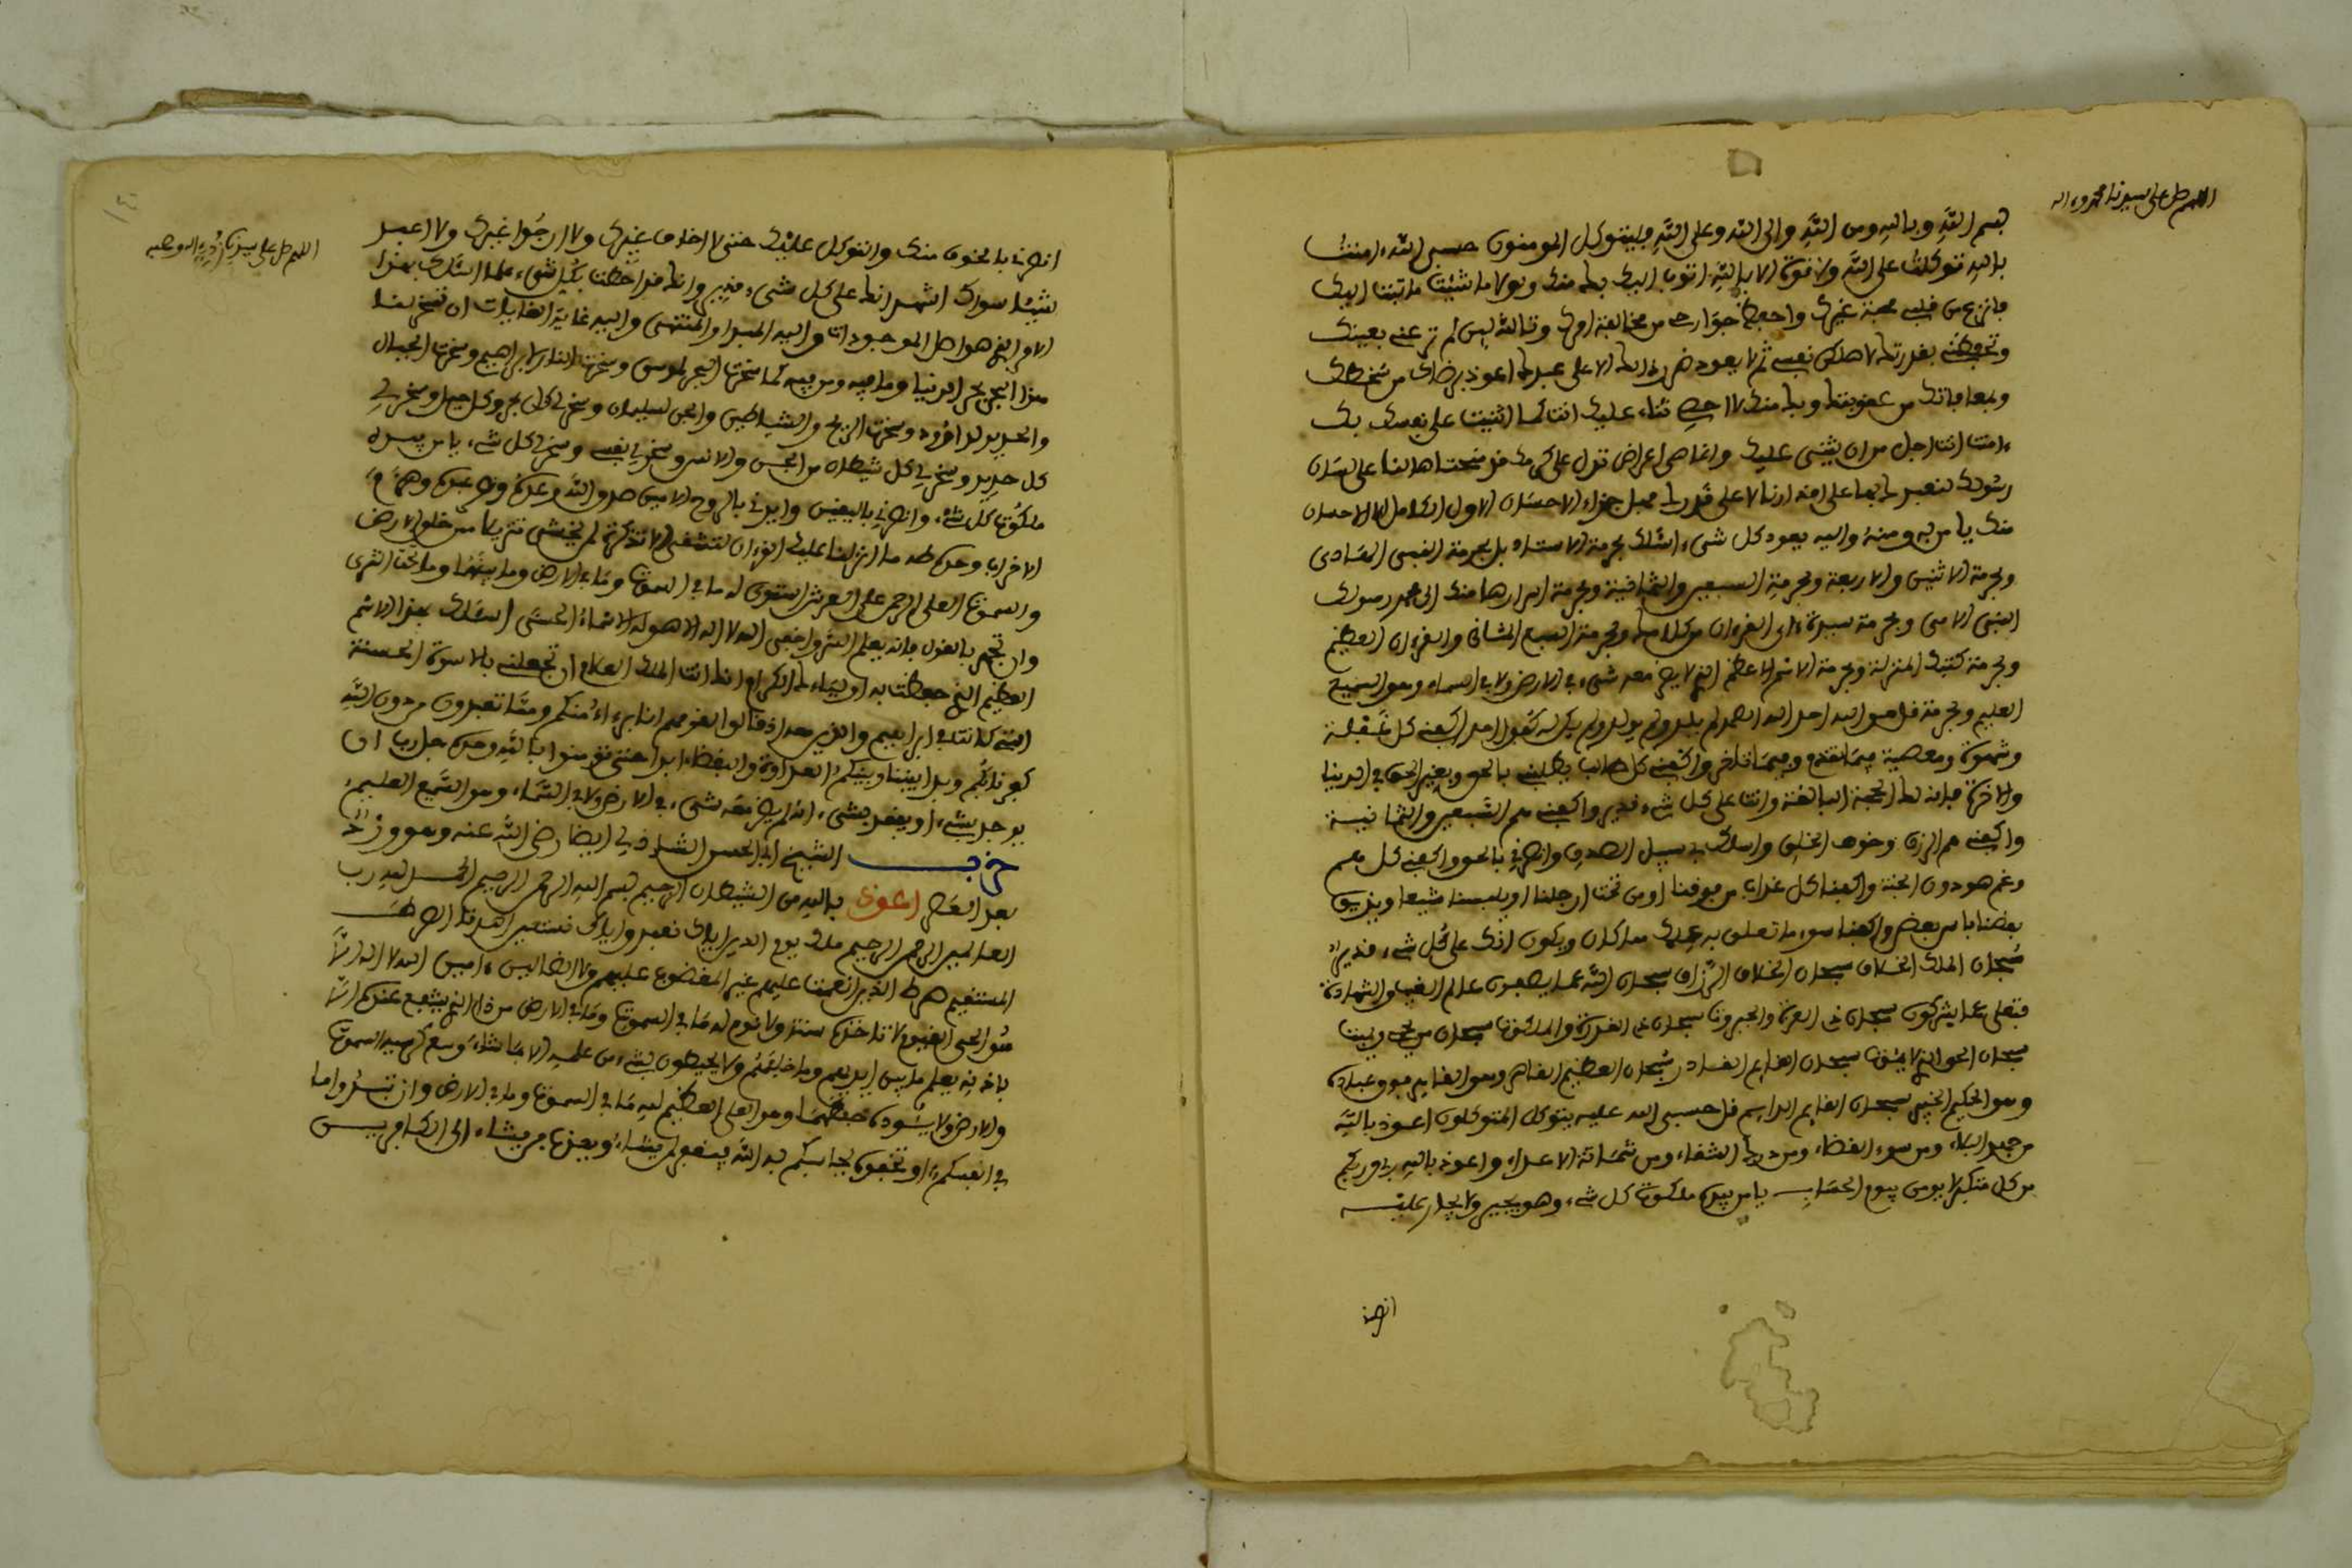 اللهم صل على سيدنا محمد وءاله
بسم الله وبالله ومن الله والى الله وعلى الله فليتوكل المومنون حسبي الله ءامنت
بالله توكلت على الله ولا قوة الا بالله اتوب اليك بك منك ولولا ما شئت ما تبت اليك
فانزع من قلبي محبة غيرك واحفظ جوارحي من مخالفة امرك وتالله ليس لم ترعني بعينك
وتحفظني بقدرتك لاهلكن نفسي ثم لا يعود ضر ذلك الا على عبدك اعوذ برضاك من سخطك
وبمعافاتك من عقوبتك وبك منك لا احصي ثناء عليك انت كما اثنيت على نفسك بل
ءانت انت اجل من ان يثنى عليك وانما هي اعراض تدل على كرمك قد منحتها لنا على لسان
رسولك لنعبدك بها على اقدارنا لا على قدرك فهل جزاء الاحسان الاول الكامل الا الاحسان
منك يا من به ومنه واليه يعود كل شيء اسئلك بحرمة الاستاذ بل بحرمة النبي الهادي
وبحرمة الاثنين والاربعة وبحرمة السبعين والثمانية وبحرمة اسرارها منك الى محمد رسولك
النبي الامي وبحرمة سيدة ءاي القرءان من كلامك وبحرمة السبع المثاني والقرءان العظيم
وبحرمة كتبك المنزلة وبحرمة الاسم الاعظم الذي لا يضر معه شيء في الارض ولا في السماء وهو السميع
العليم وبحرمة قل هو الله احد الله الصمد لم يلد ولم يولد ولم يكن له كفوا احد اكفني كل غفلة
وشهوة ومعصية فيما تقدم وفيما تاخر واكفني كل طالب يطلبني بالحق وبغير الحق في الدنيا
والاخرة فانه لك الحجة البالغة وانت على كل شيء قدير واكفني هم السبعين والثمانية
واكفني هم الرزق وخوف الخلق واسلك بي سبيل الصدق وانصرني بالحق واكفني كل هم
وغم هو دون الجنة واكفنا كل عذاب من فوقنا او من تحت ارجلنا او يلبسنا شيعا ويذيق
بعضنا باس بعض واكفنا سوء ما تعلق به علمك مما كان ويكون انك على كل شيء قدير
سبحان الملك الخلاق سبحان الخلاق الرزاق سبحان الله عما يصفون عالم الغيب والشهادة
فتعلى عما يشركون سبحان ذي العزة والجبروت سبحان ذي القدرة والملكوت سبحان من يحي ويميت
سبحان الحي الذي لا يموت سبحان القايم القادر سبحان العظيم القاهر وهو القاهر فوق عباده
وهو الحكيم الخبير سبحان القايم الدايم قل حسبي الله عليه يتوكل المتوكلون اعوذ بالله
من جهد البلاء ومن سوء القضاء ومن درك الشقاء ومن شماتة الاعداء واعوذ بالله ربي وربكم
من كل متكبر لا يومن بيوم الحساب يا من بيده ملكوت كل شيء وهو يجير ولا يجار عليه
انصرني
انصرني بالخوف منك والتوكل عليك حتى لا اخاف غيرك ولا ارجوا غيرك ولا اعبد
شيئا سواك اشهد انك على كل شيء قدير وانك قد احطت بكل شيء علما اسئلك بهذا
الامر الذي هو اصل الموجودات واليه المبدا والمنتهى واليه غاية الغايات ان تسخر لنا
هذا البحر بحر الدنيا وما فيه ومن فيه كما سخرت البحر لموسى وسخرت النار لابراهيم وسخرت الجبال
والحديد لداوود وسخرت الريح والشياطين والجن لسليمان وسخر لي كل بحر وكل جبل وسخر لي
كل حديد وسخر لي كل شيطان من الجن والانس وسخر لي نفسي وسخر لي كل شيء يا من بيده
ملكوت كل شيء وانصرني باليقين وايدني بالروح الامين
الاحزاب وحده طه ما انزلنا عليك القرءان لتشقى الا تذكرة لمن يخشى تنزيلا ممن خلق الارض
والسموات العلى الرحمن على العرش استوى له ما في السموات وما في الارض وما بينهما وما تحت الثرى
وان تجهر بالقول فانه يعلم السر واخفى الله لا اله الا هو له الاسماء الحسنى اسئلك بهذا الاسم
العظيم الذي حفظت به اولياءك الكرام انك انت الملك العلام ان تجعلني بالاسوة الحسنة
التي كانت في ابراهيم والذين معه اذ قالوا لقومهم انا برءاؤا منكم ومما تعبدون من دون الله
كفرنا بكم وبدا بيننا وبينكم العداوة والبغضاء ابدا حتى تومنوا بالله وحده جل ربنا ان
يوجد بشيء او يفقد بشيء انه لم يضر معه شيء في الارض ولا في السماء وهو السميع العليم
حزب الشيخ ابي الحسن الشاذلي ايضا رضي الله عنه وهو ورده
بعد العصر اعوذ بالله من الشيطان الرجيم بسم الله الرحمن الرحيم الحمد لله رب
العالمين الرحمن الرحيم ملك يوم الدين اياك نعبد واياك نستعين اهدنا الصراط
المستقيم صراط الذين انعمت عليهم غير المغضوب عليهم ولا الضالين ءامين الله لا اله الا
هو الحي القيوم لا تاخذه سنة ولا نوم له ما في السموات وما في الارض من ذا الذي يشفع عنده الا
باذنه يعلم ما بين ايديهم وما خلفهم ولا يحيطون بشيء من علمه الا بما شاء وسع كرسيه السموات
والارض ولا يئوده حفظهما وهو العلي العظيم لله ما في السموات وما في الارض وان تبدوا ما
في انفسكم او تخفوه يحاسبكم به الله فيغفر لمن يشاء ويعذب من يشاء الى الكافرين